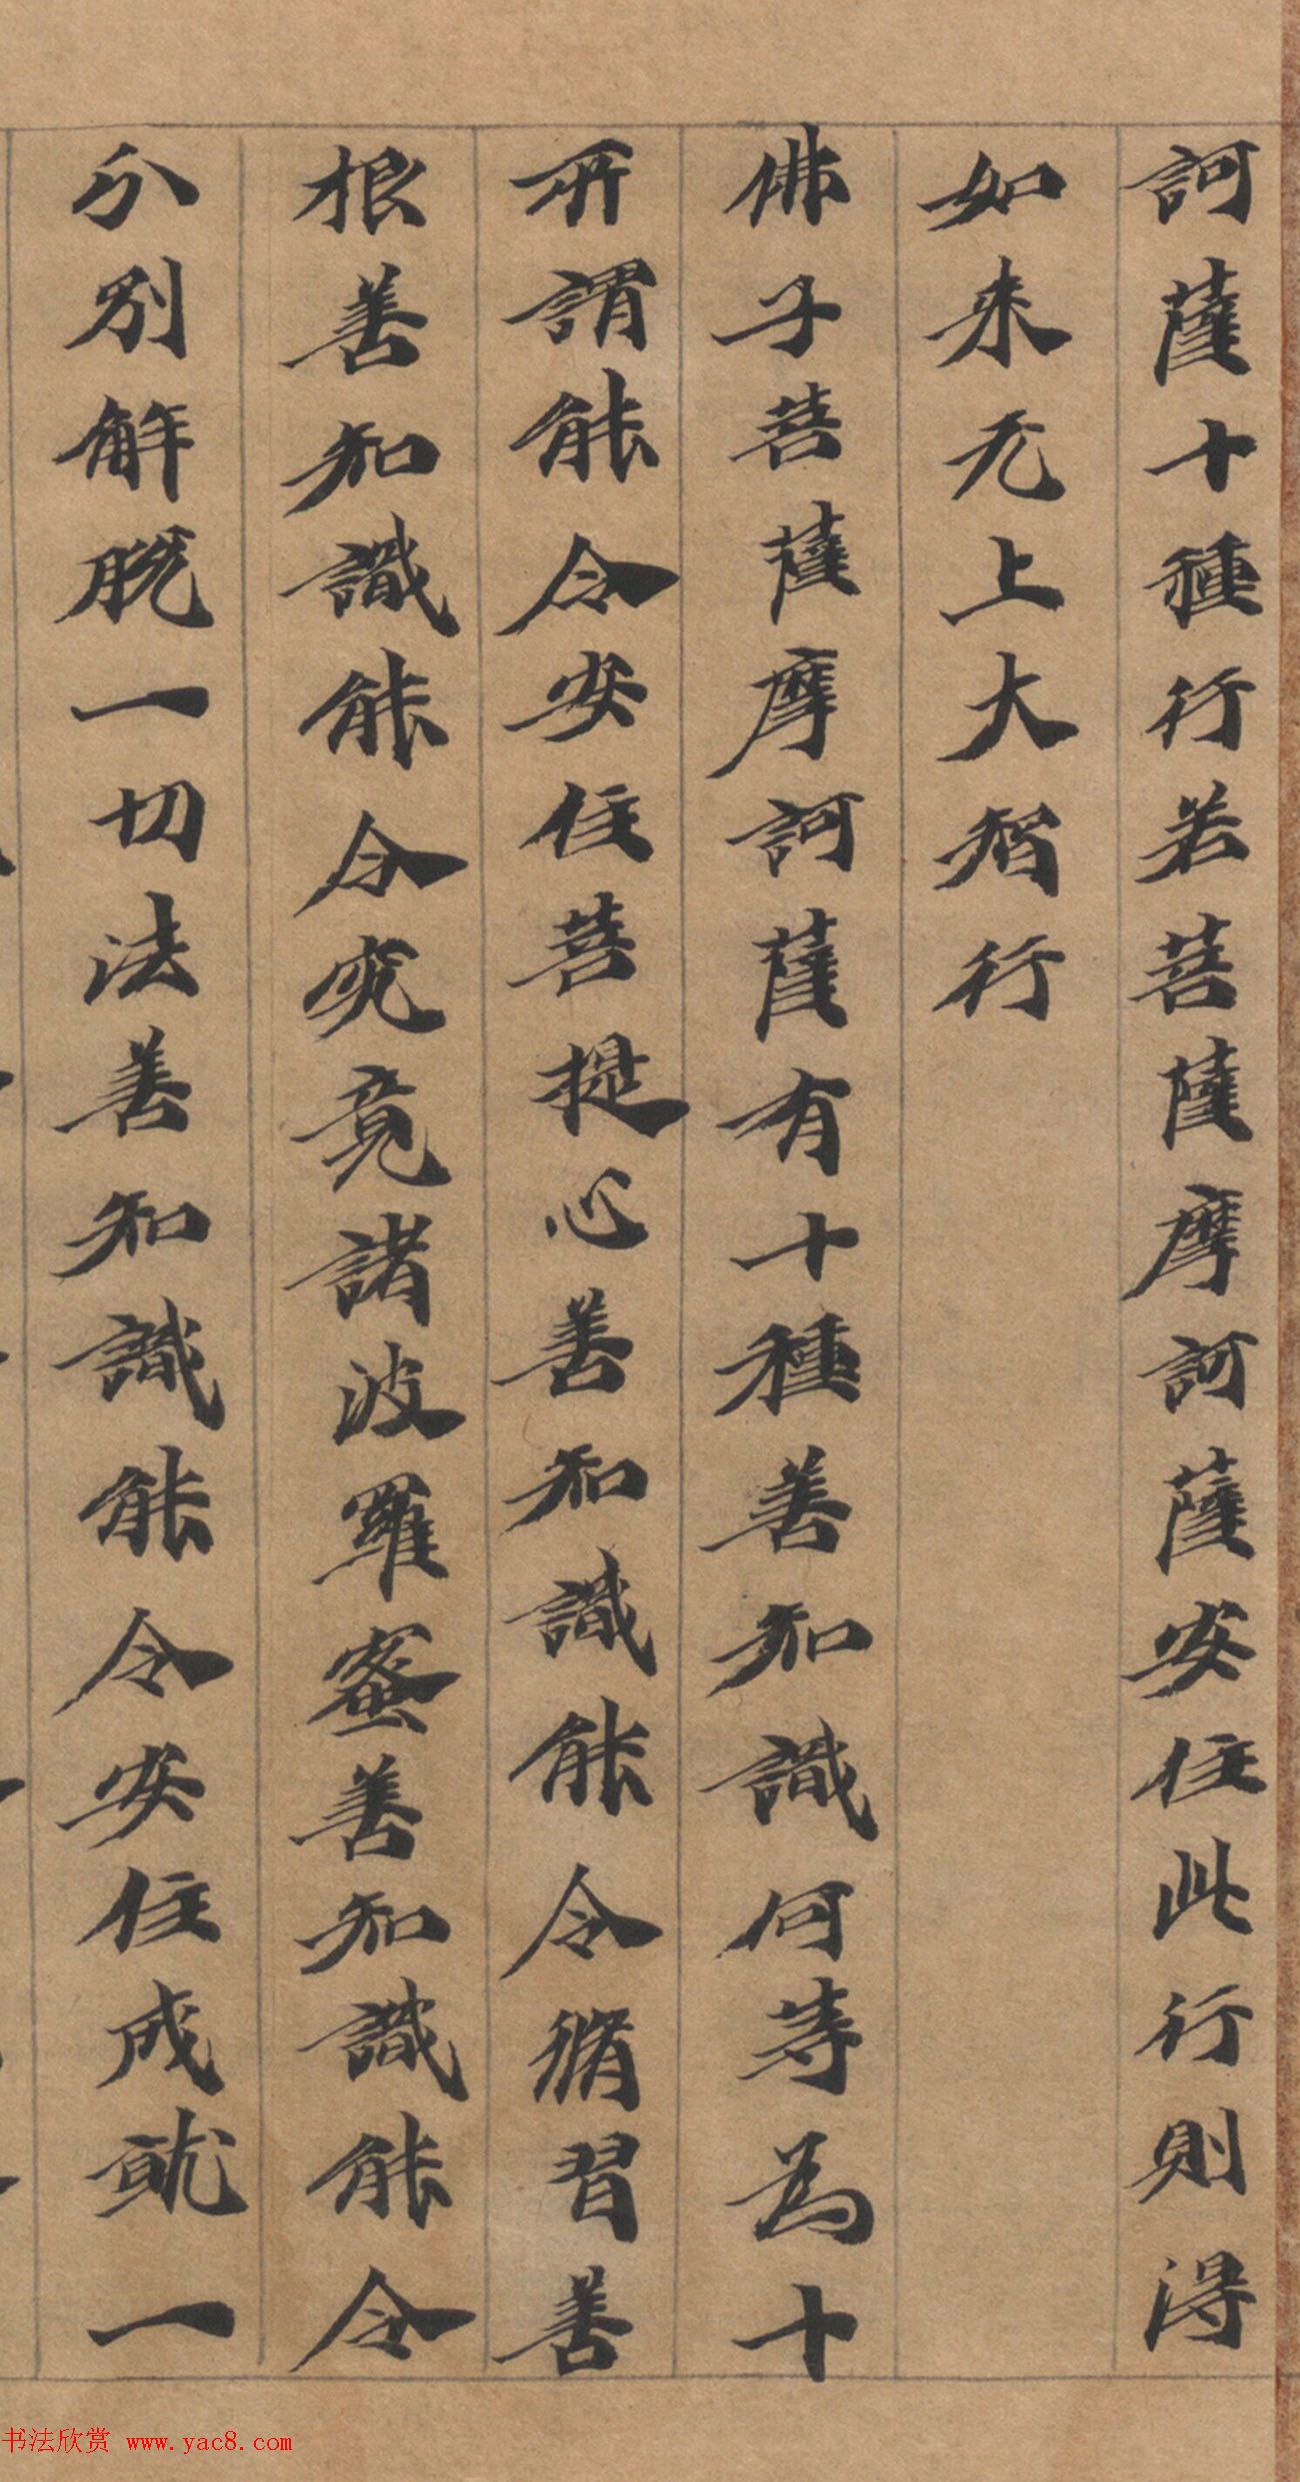 訶薩十種行若菩薩摩訶薩安住此行則得
如来无上大智行
佛子菩薩摩訶薩有十種善知識何等為十
所謂能令安住菩提心善知識能令脩習善
根善知識能令究竟諸波羅蜜善知識能令
分別解脫一切法善知識能令安住成就一
书法欣赏 www.yac8.com